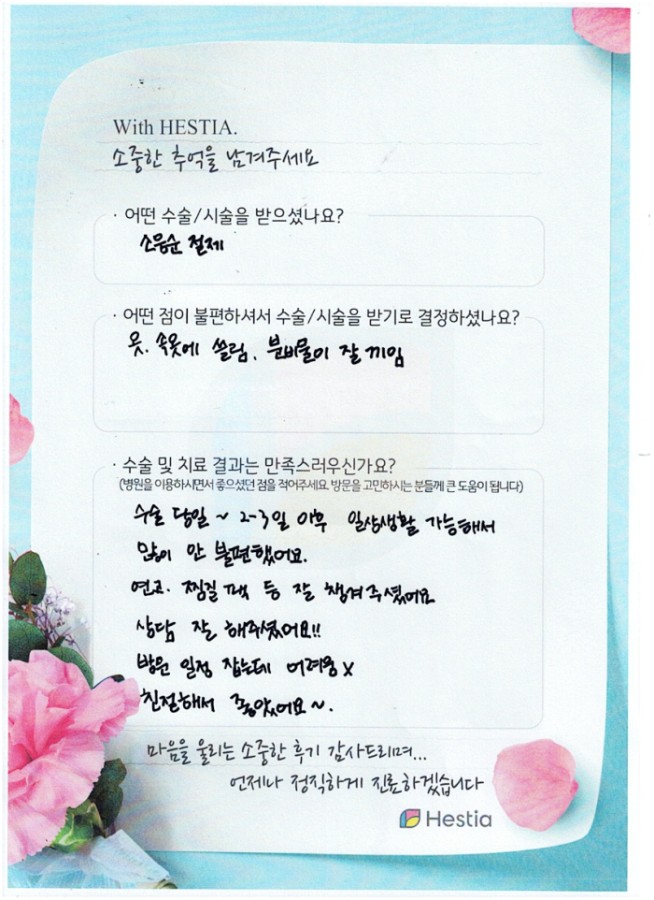 With HESTIA.
소중한 추억을 남겨주세요
· 어떤 수술/시술을 받으셨나요?
소음순 절제
· 어떤 점이 불편하셔서 수술/시술을 받기로 결정하셨나요?
옷. 속옷에 쓸림. 분비물이 잘 끼임
· 수술 및 치료 결과는 만족스러우신가요?
(병원을 이용하시면서 좋으셨던 점을 적어주세요. 방문을 고민하시는 분들께 큰 도움이 됩니다)
수술 당일 ~ 2-3일 이후 일상생활 가능해서
많이 안 불편했어요.
연고. 찜질 팩 등 잘 챙겨주셨어요
상담 잘 해주셨어요!!
방문 일정 잡는데 어려움 X
친절해서 좋았어요~.
마음을 울리는 소중한 후기 감사드리며...
언제나 정직하게 진료하겠습니다
Hestia